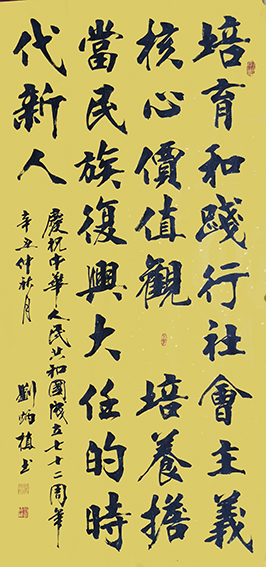 培育和踐行社會主義
核心價值觀 培養擔
當民族復興大任的時
代新人
慶祝中華人民共和國成立七十二周年
辛丑仲秋月
劉炳 书